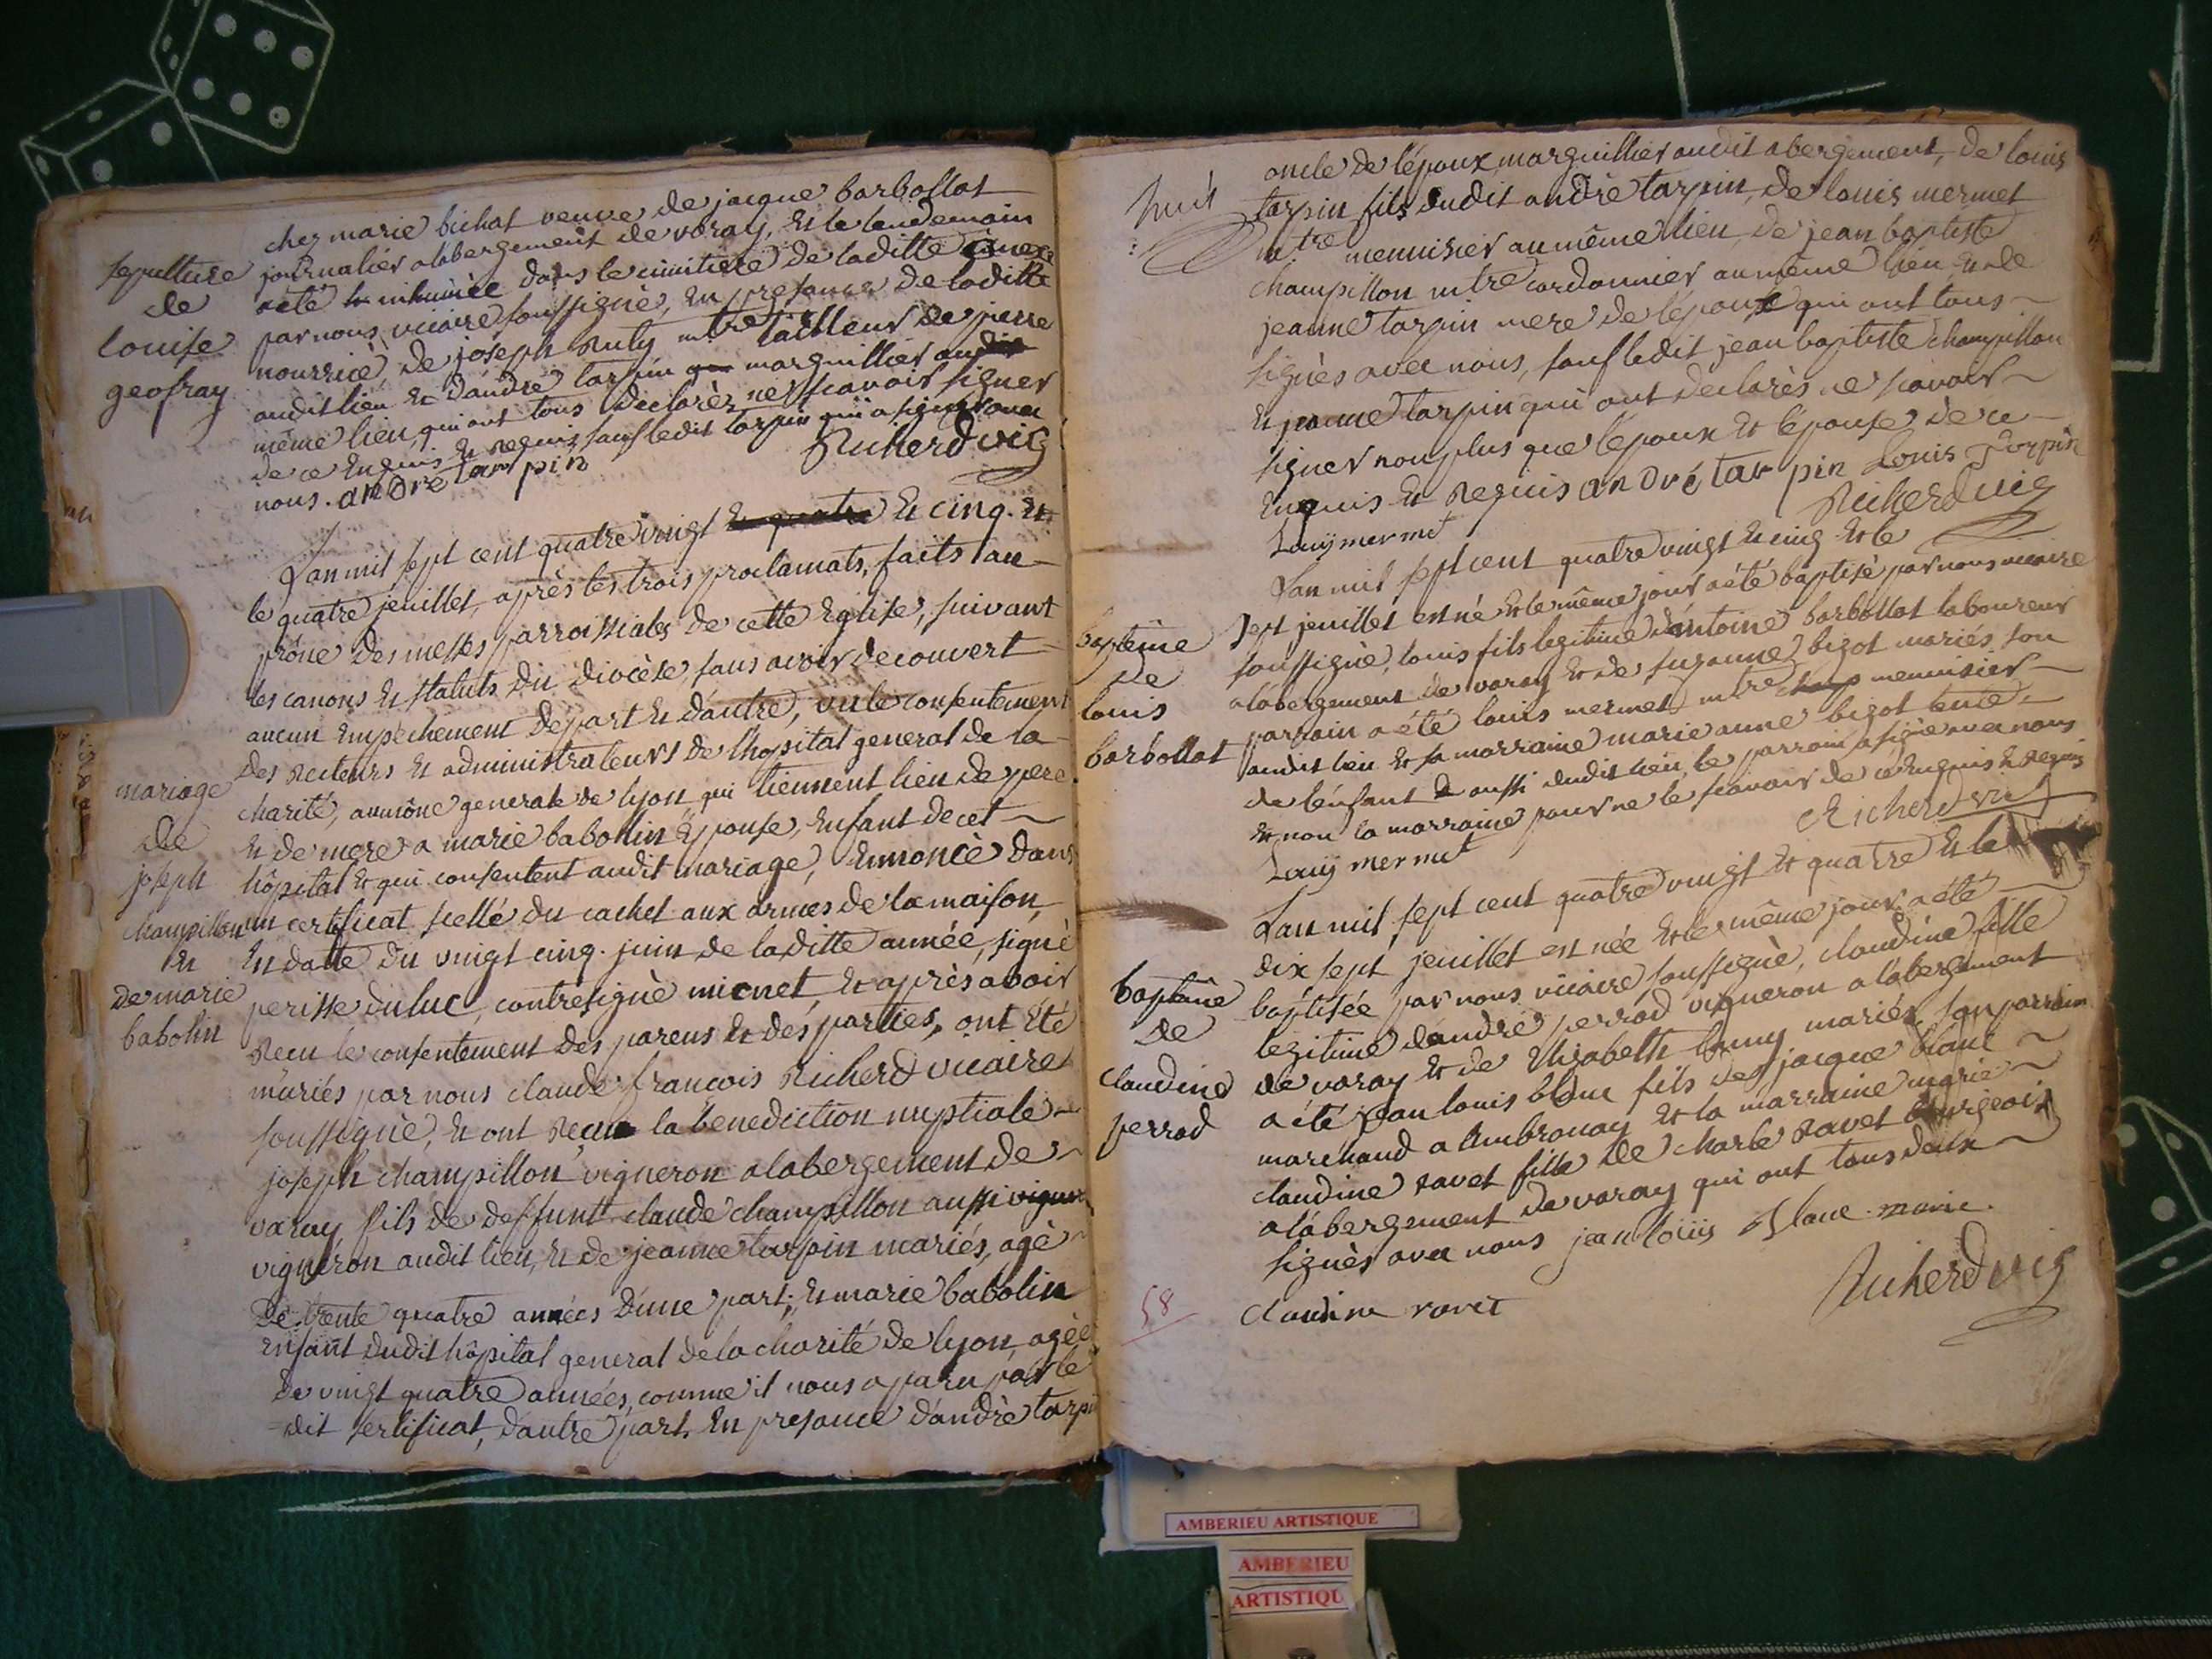 chez marie bichat veuve de jacque barbollat
journalier alabergement de varay, et le lendemain
sepulture
de
louise
geofray
a été inhumée dans le cimitiere de laditte annexe
par nous vicaire soussignè, en presance de laditte
nourrice, de joseph Ruty mtre tailleur de pierre
audit lieu et d'andré tarpin marguillier audit
même lieu, qui ont tous declarèz ne scavoir signer
de ce enquis et requis, sauf ledit tarpin qui a signer avec
nous. andré tarpin Richerd vic
L'an mil sept cent quatre vingt et quatre et cinq. et
le quatre jeuillet, après les trois proclamats, faits au
prône des messes parroissiales de cette Eglise, suivant
les canons et statuts du diocèse, sans avoir decouvert
aucun empechement de part et d'autre, vu le consentement
des Recteurs et administrateurs de l'hopital general de la
mariage
de
joseph
champillon
et
de marie
babolin
charité, aumône generale de lyon, qui tiennent lieu de pere
et de mere a marie babolin Epouse, enfant de cet
hôpital et qui consentent audit mariage, Ennoncè dans
un certificat scellé du cachet aux armes de la maison,
en datte du vingt cinq. juin de laditte année, signè
perisse duluc, contresignè micnet, et après avoir
Recu le consentement des parens et des parties, ont été
mariés par nous claude françois Richerd vicaire
soussignè, et ont Recu la benediction nuptiale
joseph champillon vigneron alabergement de
varay fils de deffunt claude champillon aussi vigner
vigneron audit lieu, et de jeanne tarpin mariés, agè
de trente quatre années d'une part; et marie babolin
enfant dudit hôpital general de la charité de lyon, agèe
de vingt quatre années, comme il nous a paru par le
dit sertificat, d'autre part. En presance d'andrè tarpin
huit
oncle de l'époux, marguillier audit abergement, de louis
tarpin fils dudit andrè tarpin, de louis mermet
mtre menuisier au même lieu, de jean baptiste
champillon mtre cordonnier au même lieu et de
jeanne tarpin mere de l'époux qui ont tous
signès avec nous, sauf ledit jean baptiste champillon
et jeanne tarpin qui ont declarès ne scavoir
signer non plus que l'époux et l'épouse de ce
enquis et Requis andré tarpin Louis Tarpin
Louÿ mermet Richerd vic
L'an mil sept cent quatre vingt et cinq et le
baptême
de
louis
barbollat
sept jeuillet est né et le même jour a été baptisé par nous vicaire
soussignè, louis fils legitime d'antoine barbollat laboureur
alabergement de varay et de suzanne bizot mariés, son
parrain a été louis mermet mtre menuisier
audit lieu et sa marraine marie anne bizot tente
de l'enfant aussi dudit lieu, le parrain a signè avec nous
et non la marraine pour ne le scavoir de ce enquis et requis
Louÿ mermet Richerd vic
L'an mil sept cent quatre vingt et quatre et le
baptême
de
claudine
perrod
dix sept jeuillet est née et le même jour a été
baptisée par nous vicaire soussignè, claudine fille
legitime d'andré perrod vigneron a labergement
de varay et de Elisabeth mariés, son parrain
a été jean louis blanc fils de jacque blanc
marchand a Ambronay et la marraine marie
claudine ravet fille de charle Ravet bourgeois
alabergement de varay qui ont tous deux
signès avec nous jean louis Blanc . marie .
claudine ravet Richerd vic
58
AMBERIEU ARTISTIQUE
AMBERIEU
ARTISTIQU